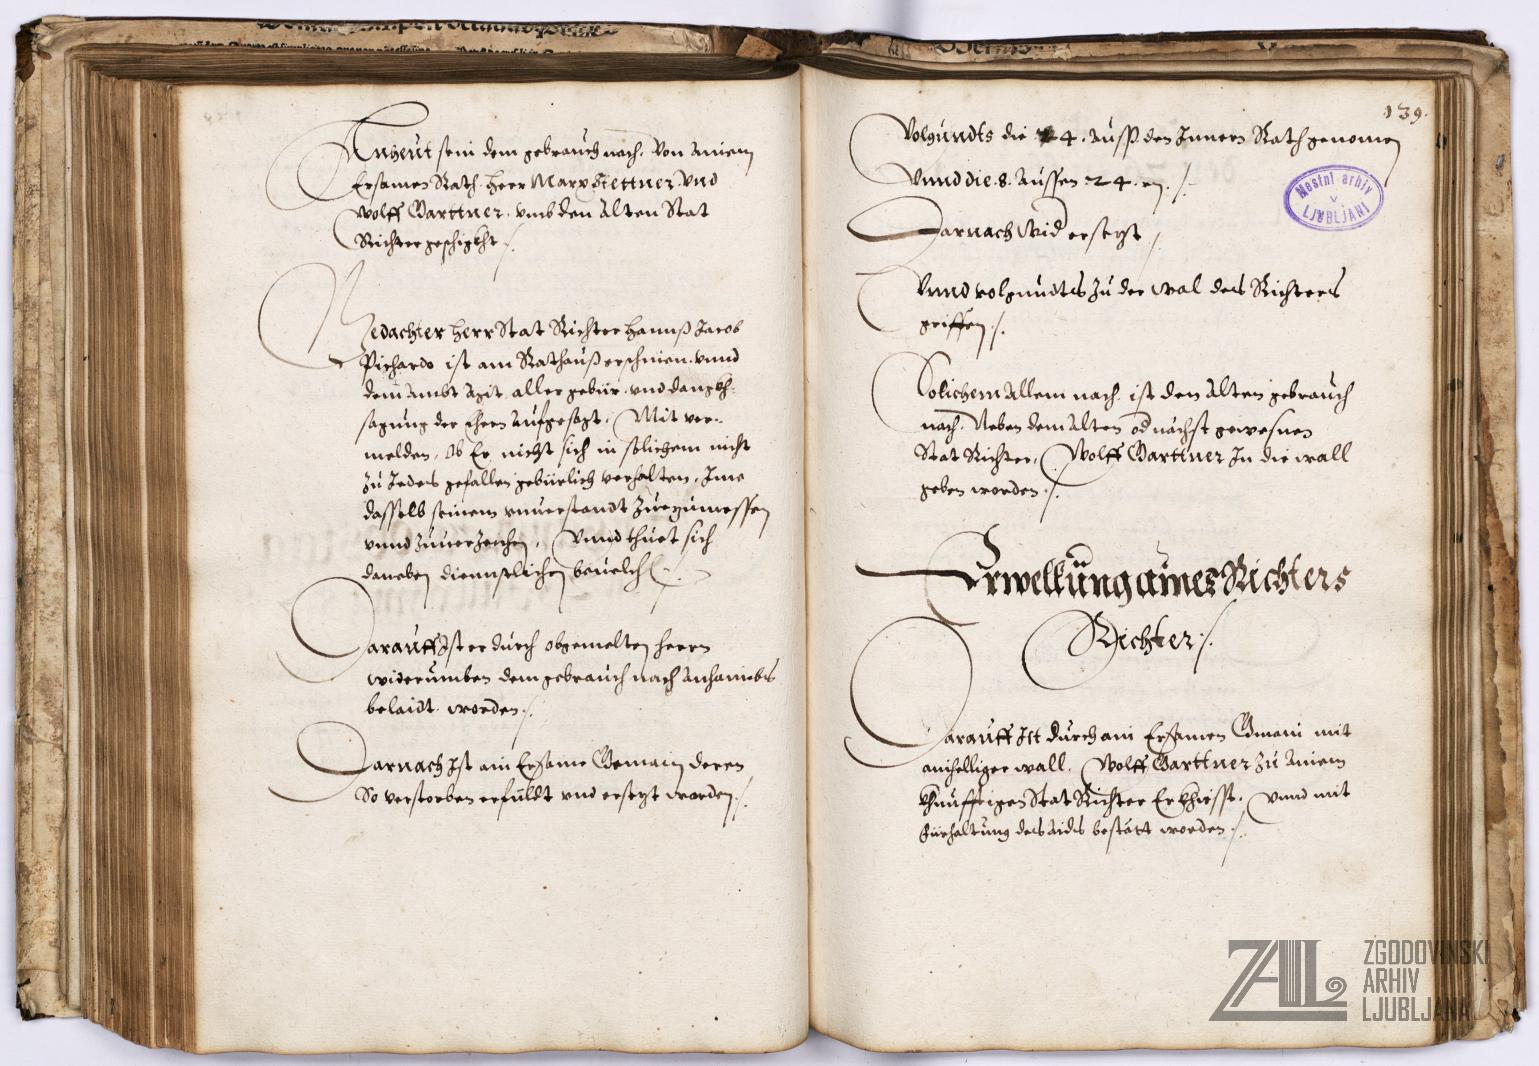 Anheut sein dem gebrauch nach. Von Ainem
Ersamen Rath. herr Marx Stettner Vnd
Wolff Garttner. vmb den Alten Stat
Richter geschigkht./.
Gedachter herr Stat Richter Hannß Jacob
Pichardo ist am Rathauß erschinen. vnnd
dem Ambt mit aller gebür. vnd dangkh-
sagung der Ehern aufgesagt. Mit ver-
melden. Ob Er nicht sich in solichem nicht
zu Jedes gefallen gebürlich verhalten. Ime
dasselb seinem vnuerstandt zuezumessen
vnnd zuuerzeichen. Vnnd thuet sich
daneben diennstlichen beuelch./.
Darauff Ist er durch obgemelten herrn
widerumben dem gebrauch nach Anhaimbs
belaidt worden./.
Darnach Ist ain Ersame Gemain deren
So verstorben erfüldt vnd ersezt worden./.
139.
Volgundts die 24. Auss den Innern Rath genomen
Vnnd die.8. Aussen 24.en./.
Darnach wid ersezt ./.
Vnnd volgundts zu der wal des Richters
griffen./.
Solichem Allem nach. ist den Alten gebrauch
nach. Neben dem Alten od nächst gewesnen
Stat Richter. Wolff Garttner In die wall
geben worden./.
Erwellung aines Richters
Richter./.
Darauff Ist durch ain Ersamen Gmain mit
ainhelliger wall. Wolff Garttner zu Ainem
khunfftigen Stat Richter Erkhiesst. Vnnd mit
fürhaltung des Aids bestätt worden./.
Mestni arhiv
v
LJUBLJANI
ZAL
ZGODOVINSKI
ARHIV
LJUBLJANA